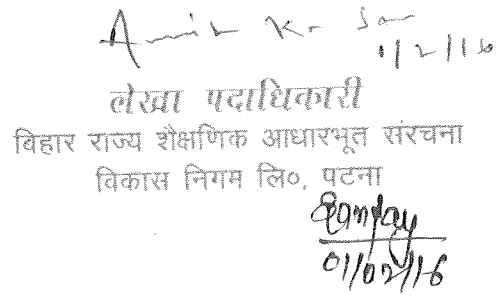 Amit Kr
1/2/16
लेखा पदाधिकारी
बिहार राज्य शैक्षणिक आधारभूत संरचना
विकास निगम लि०, पटना
Sanjay
01/02/16